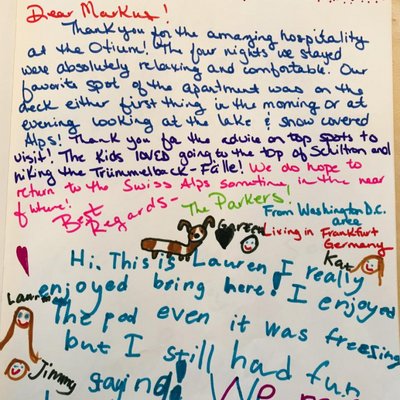 Dear Markus!
Thank you for the amazing hospitality
at the Otium! The four nights we stayed
were absolutely relaxing and comfortable. Our
favorite spot of the apartment was on the
deck either first thing in the morning or at
evening looking at the lake & snow covered
Alps! Thank you for the advice on top spots to
visit! The kids LOVED going to the top of Schiltron and
hiking the Trümmelback-Fälle! We do hope to
return to the Swiss Alps sometime in the near
future!
Best
Regards-
The Parkers!
From Washington D.C.
area
Living in Frankfurt
Germany
Kat
Hi, This is Lauren I really
enjoyed bring here! I enjoyed
The pad even it was freesing
but I still had fun
saying!
Lauren
Jimmy
We